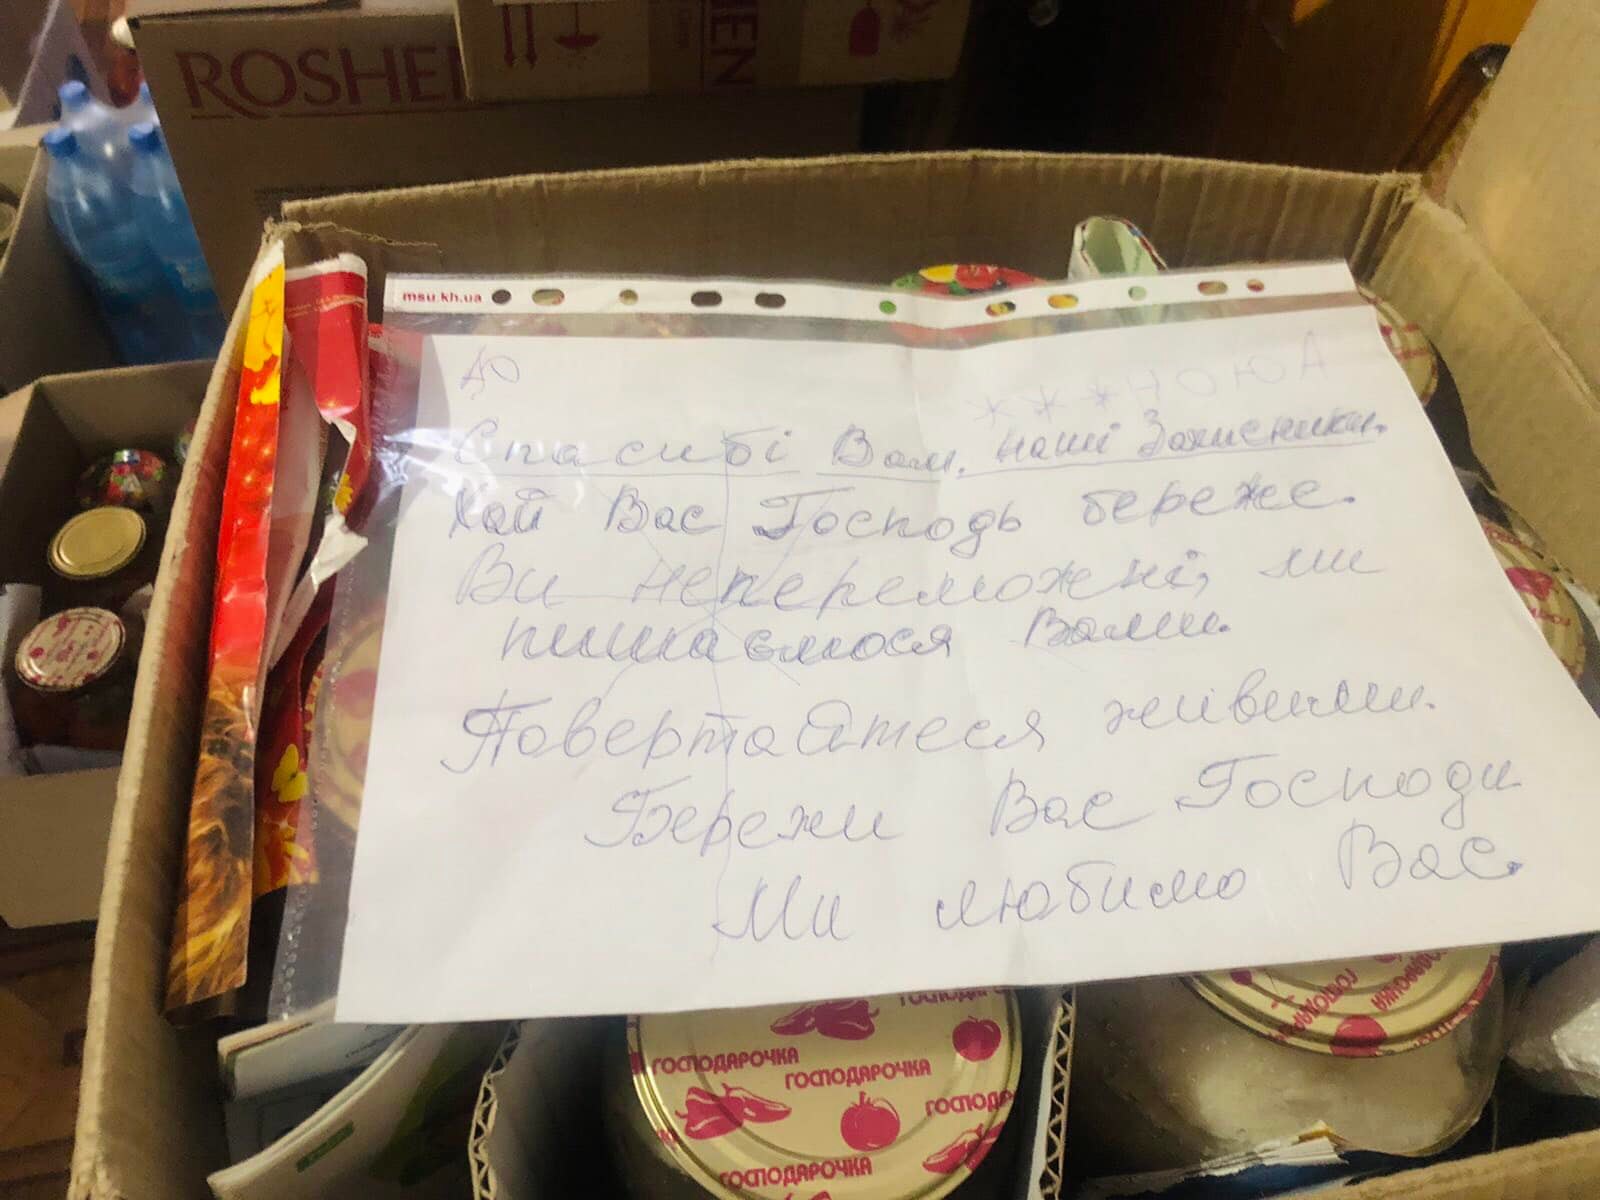 ROSHEN
HEN
msu.kh.ua
До
***НОЮА
Спасибі Вам, наші Захисники.
Хай Вас Господь береже.
Ви непереможні, ми
пишаємося Вами.
Повертайтеся живими.
Бережи Вас Господи
Ми любимо Вас.
ГОСПОДАР
ГОСПОДАРОЧКА
ГОСПОДАРОЧКА
ГОСПОДА
ГОСПОДАРОЧКА